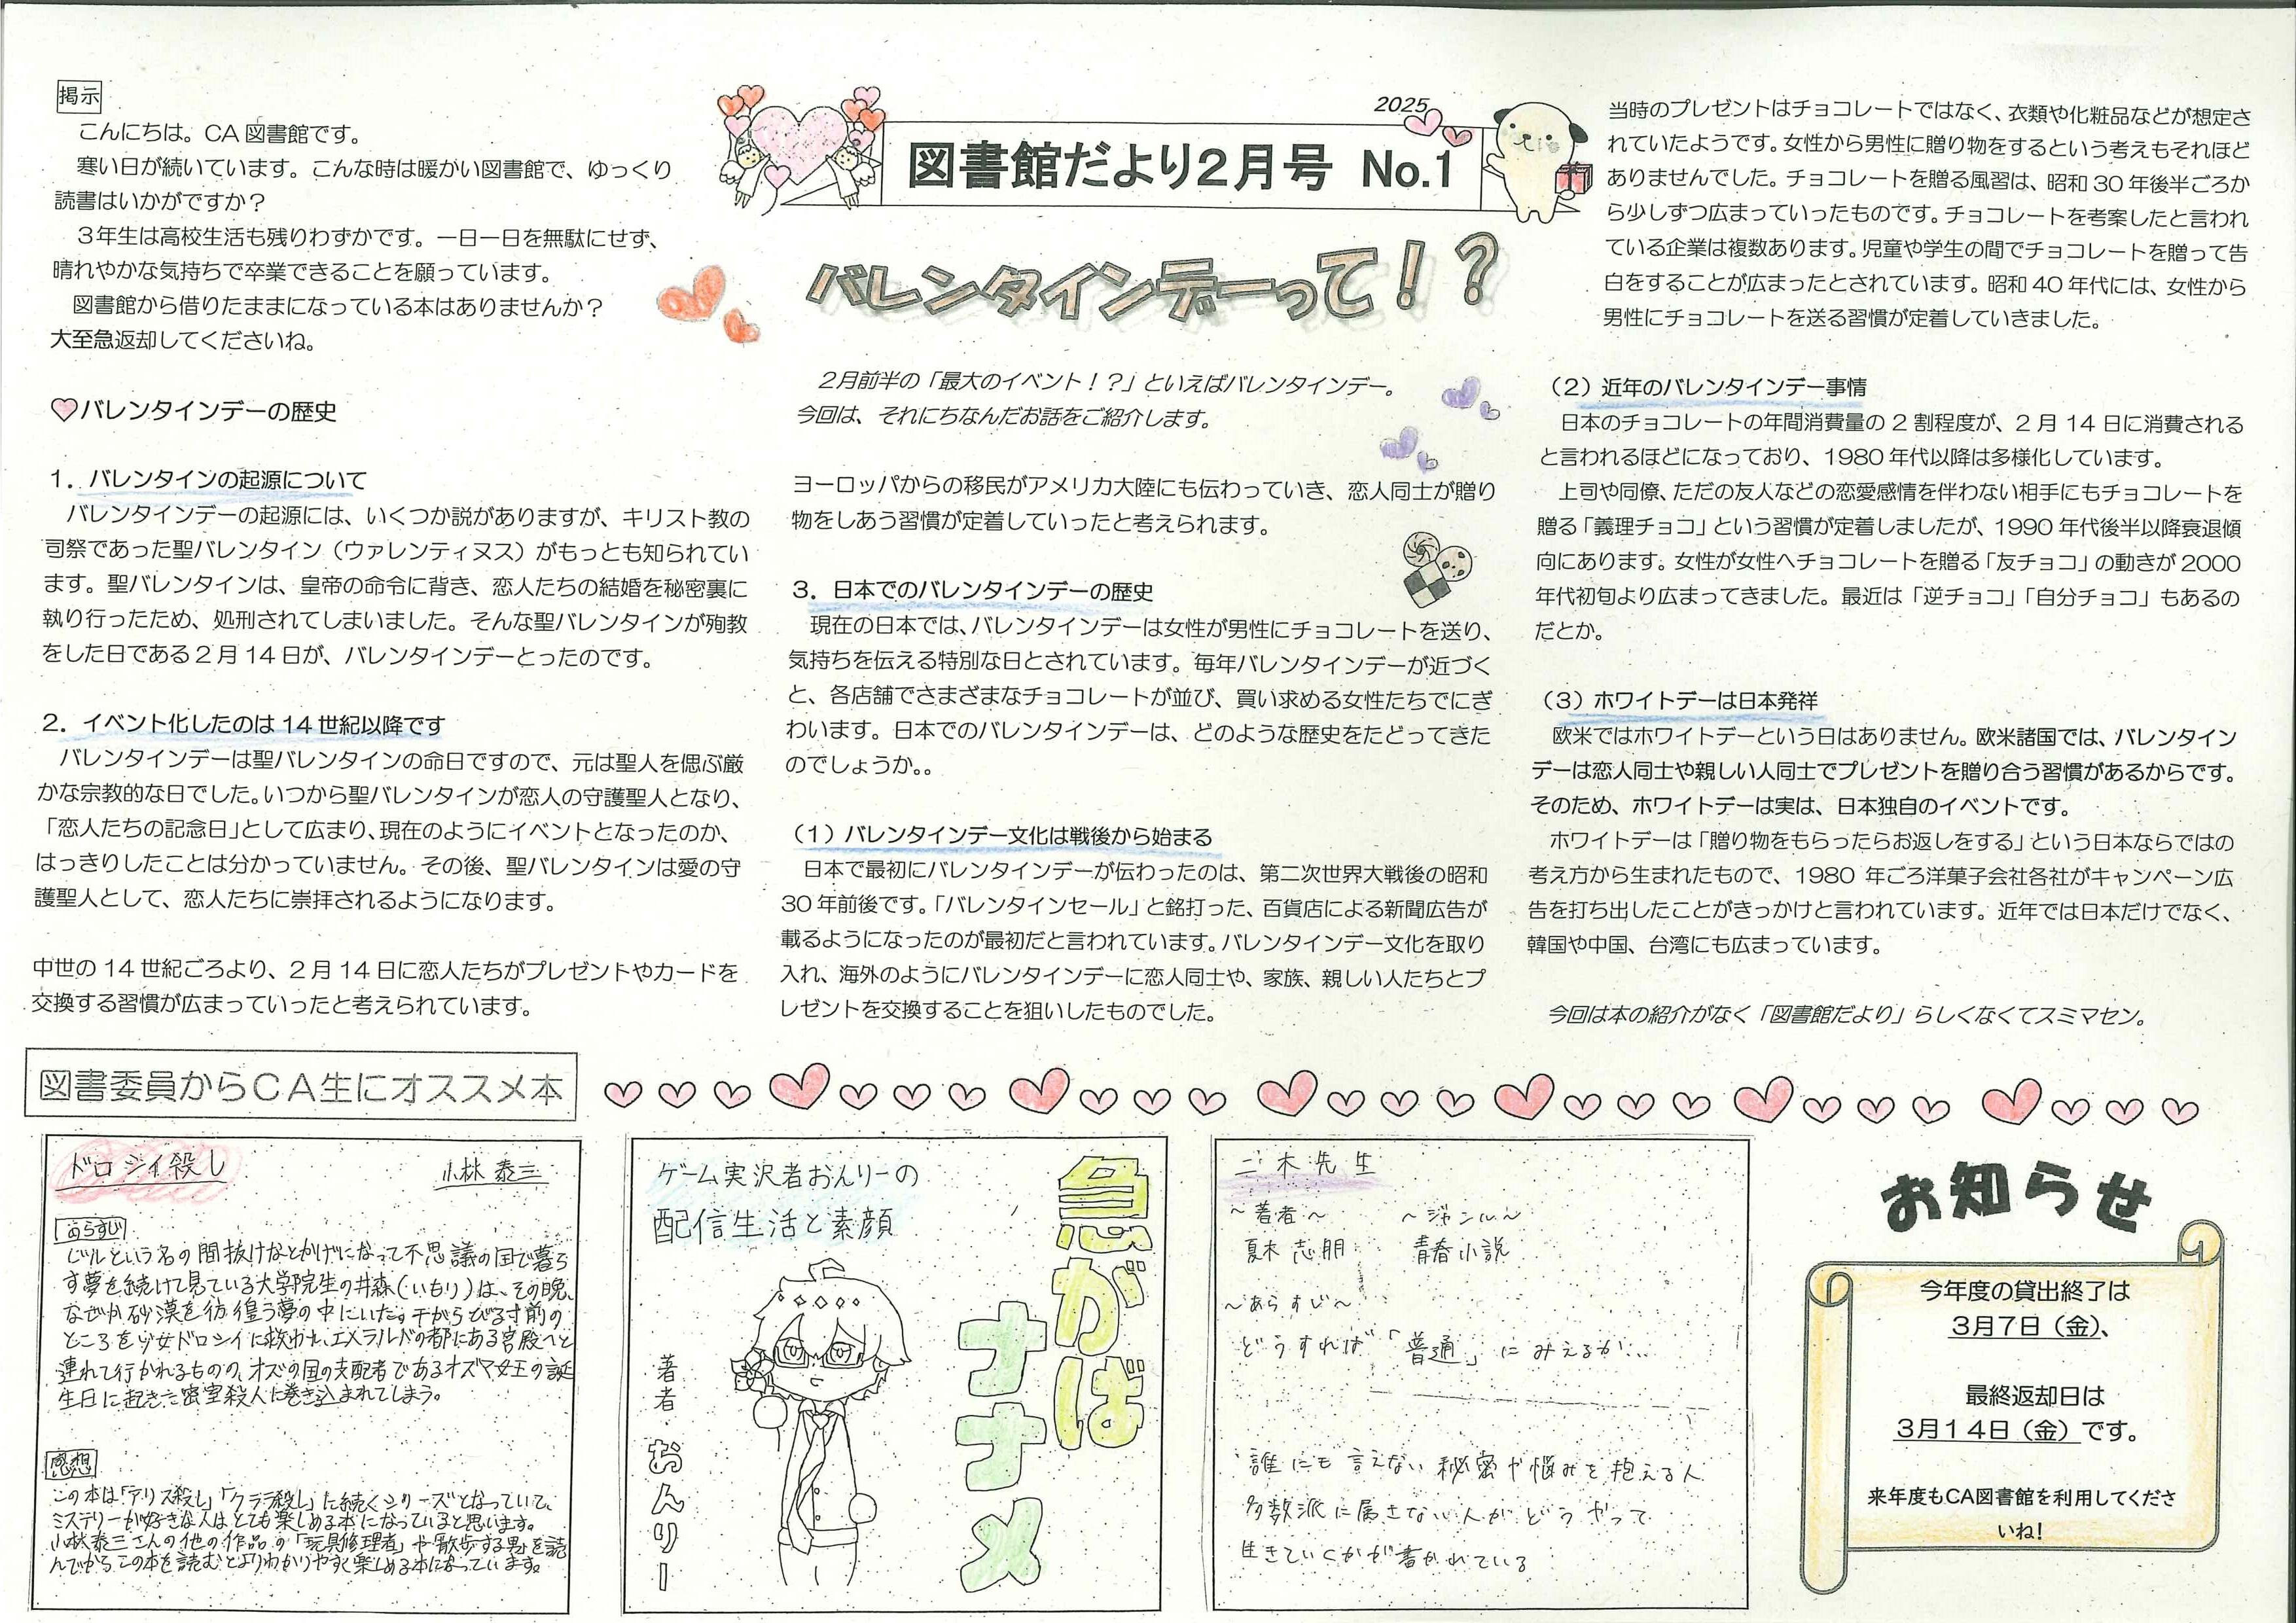 掲示
こんにちは。CA図書館です。
寒い日が続いています。こんな時は暖かい図書館で、ゆっくり
読書はいかがですか？
３年生は高校生活も残りわずかです。一日一日を無駄にせず、
晴れやかな気持ちで卒業できることを願っています。
図書館から借りたままになっている本はありませんか？
大至急返却してくださいね。
2025
図書館だより２月号 No.1
バレンタインデーって！？
２月前半の「最大のイベント！？」といえばバレンタインデー。
今回は、それにちなんだお話をご紹介します。
♡バレンタインデーの歴史
１．バレンタインの起源について
バレンタインデーの起源には、いくつか説がありますが、キリスト教の
司祭であった聖バレンタイン（ウァレンティヌス）がもっとも知られてい
ます。聖バレンタインは、皇帝の命令に背き、恋人たちの結婚を秘密裏に
執り行ったため、処刑されてしまいました。そんな聖バレンタインが殉教
をした日である２月14日が、バレンタインデーとったのです。
２．イベント化したのは14世紀以降です
バレンタインデーは聖バレンタインの命日ですので、元は聖人を偲ぶ厳
かな宗教的な日でした。いつから聖バレンタインが恋人の守護聖人となり、
「恋人たちの記念日」として広まり、現在のようにイベントとなったのか、
はっきりしたことは分かっていません。その後、聖バレンタインは愛の守
護聖人として、恋人たちに崇拝されるようになります。
中世の14世紀ごろより、２月14日に恋人たちがプレゼントやカードを
交換する習慣が広まっていったと考えられています。
ヨーロッパからの移民がアメリカ大陸にも伝わっていき、恋人同士が贈り
物をしあう習慣が定着していったと考えられます。
３．日本でのバレンタインデーの歴史
現在の日本では、バレンタインデーは女性が男性にチョコレートを送り、
気持ちを伝える特別な日とされています。毎年バレンタインデーが近づく
と、各店舗でさまざまなチョコレートが並び、買い求める女性たちでにぎ
わいます。日本でのバレンタインデーは、どのような歴史をたどってきた
のでしょうか。。
（１）バレンタインデー文化は戦後から始まる
日本で最初にバレンタインデーが伝わったのは、第二次世界大戦後の昭和
30年前後です。「バレンタインセール」と銘打った、百貨店による新聞広告が
載るようになったのが最初だと言われています。バレンタインデー文化を取り
入れ、海外のようにバレンタインデーに恋人同士や、家族、親しい人たちとプ
レゼントを交換することを狙いしたものでした。
当時のプレゼントはチョコレートではなく、衣類や化粧品などが想定さ
れていたようです。女性から男性に贈り物をするという考えもそれほど
ありませんでした。チョコレートを贈る風習は、昭和30年後半ごろか
ら少しずつ広まっていったものです。チョコレートを考案したと言われ
ている企業は複数あります。児童や学生の間でチョコレートを贈って告
白をすることが広まったとされています。昭和40年代には、女性から
男性にチョコレートを送る習慣が定着していきました。
（２）近年のバレンタインデー事情
日本のチョコレートの年間消費量の２割程度が、２月14日に消費される
と言われるほどになっており、1980年代以降は多様化しています。
上司や同僚、ただの友人などの恋愛感情を伴わない相手にもチョコレートを
贈る「義理チョコ」という習慣が定着しましたが、1990年代後半以降衰退傾
向にあります。女性が女性へチョコレートを贈る「友チョコ」の動きが2000
年代初旬より広まってきました。最近は「逆チョコ」「自分チョコ」もあるの
だとか。
（３）ホワイトデーは日本発祥
欧米ではホワイトデーという日はありません。欧米諸国では、バレンタイン
デーは恋人同士や親しい人同士でプレゼントを贈り合う習慣があるからです。
そのため、ホワイトデーは実は、日本独自のイベントです。
ホワイトデーは「贈り物をもらったらお返しをする」という日本ならではの
考え方から生まれたもので、1980年ごろ洋菓子会社各社がキャンペーン広
告を打ち出したことがきっかけと言われています。近年では日本だけでなく、
韓国や中国、台湾にも広まっています。
今回は本の紹介がなく「図書館だより」らしくなくてスミマセン。
図書委員からＣＡ生にオススメ本
ドロシイ殺し 小林泰三
あらすじ
ビルという名の間抜けなとかげになって不思議の国で暮ら
す夢を続けて見ている大学院生の井森(いもり)は、その晩、
なぜか砂漠を彷徨う夢の中にいた。干からびる寸前の
ところを少女ドロシイに救われ、エメラルドの都にある宮殿へと
連れて行かれるものの、オズの国の支配者であるオズマ女王の誕
生日に起きた密室殺人に巻き込まれてしまう。
感想
この本は「アリス殺し」「クララ殺し」に続くシリーズとなっていて、
ミステリーが好きな人はとても楽しめる本になっていると思います。
小林泰三さんの他の作品の「玩具修理者」や「散歩する男」を読
んでから、この本を読むとよりわかりやすく楽しめる本になっています。
ゲーム実況者おんりーの
配信生活と素顔
急がば
ナナメ
著者 おんりー
二木先生
～著者～ ～ジャンル～
夏木志朋 青春小説
～あらすじ～
どうすれば「普通」にみえるか…
誰にも言えない秘密や悩みを抱える人
多数派に属さない人がどうやって
生きていくかが書かれている
お知らせ
今年度の貸出終了は
３月７日（金）、
最終返却日は
３月１４日（金）です。
来年度もCA図書館を利用してくださ
いね！